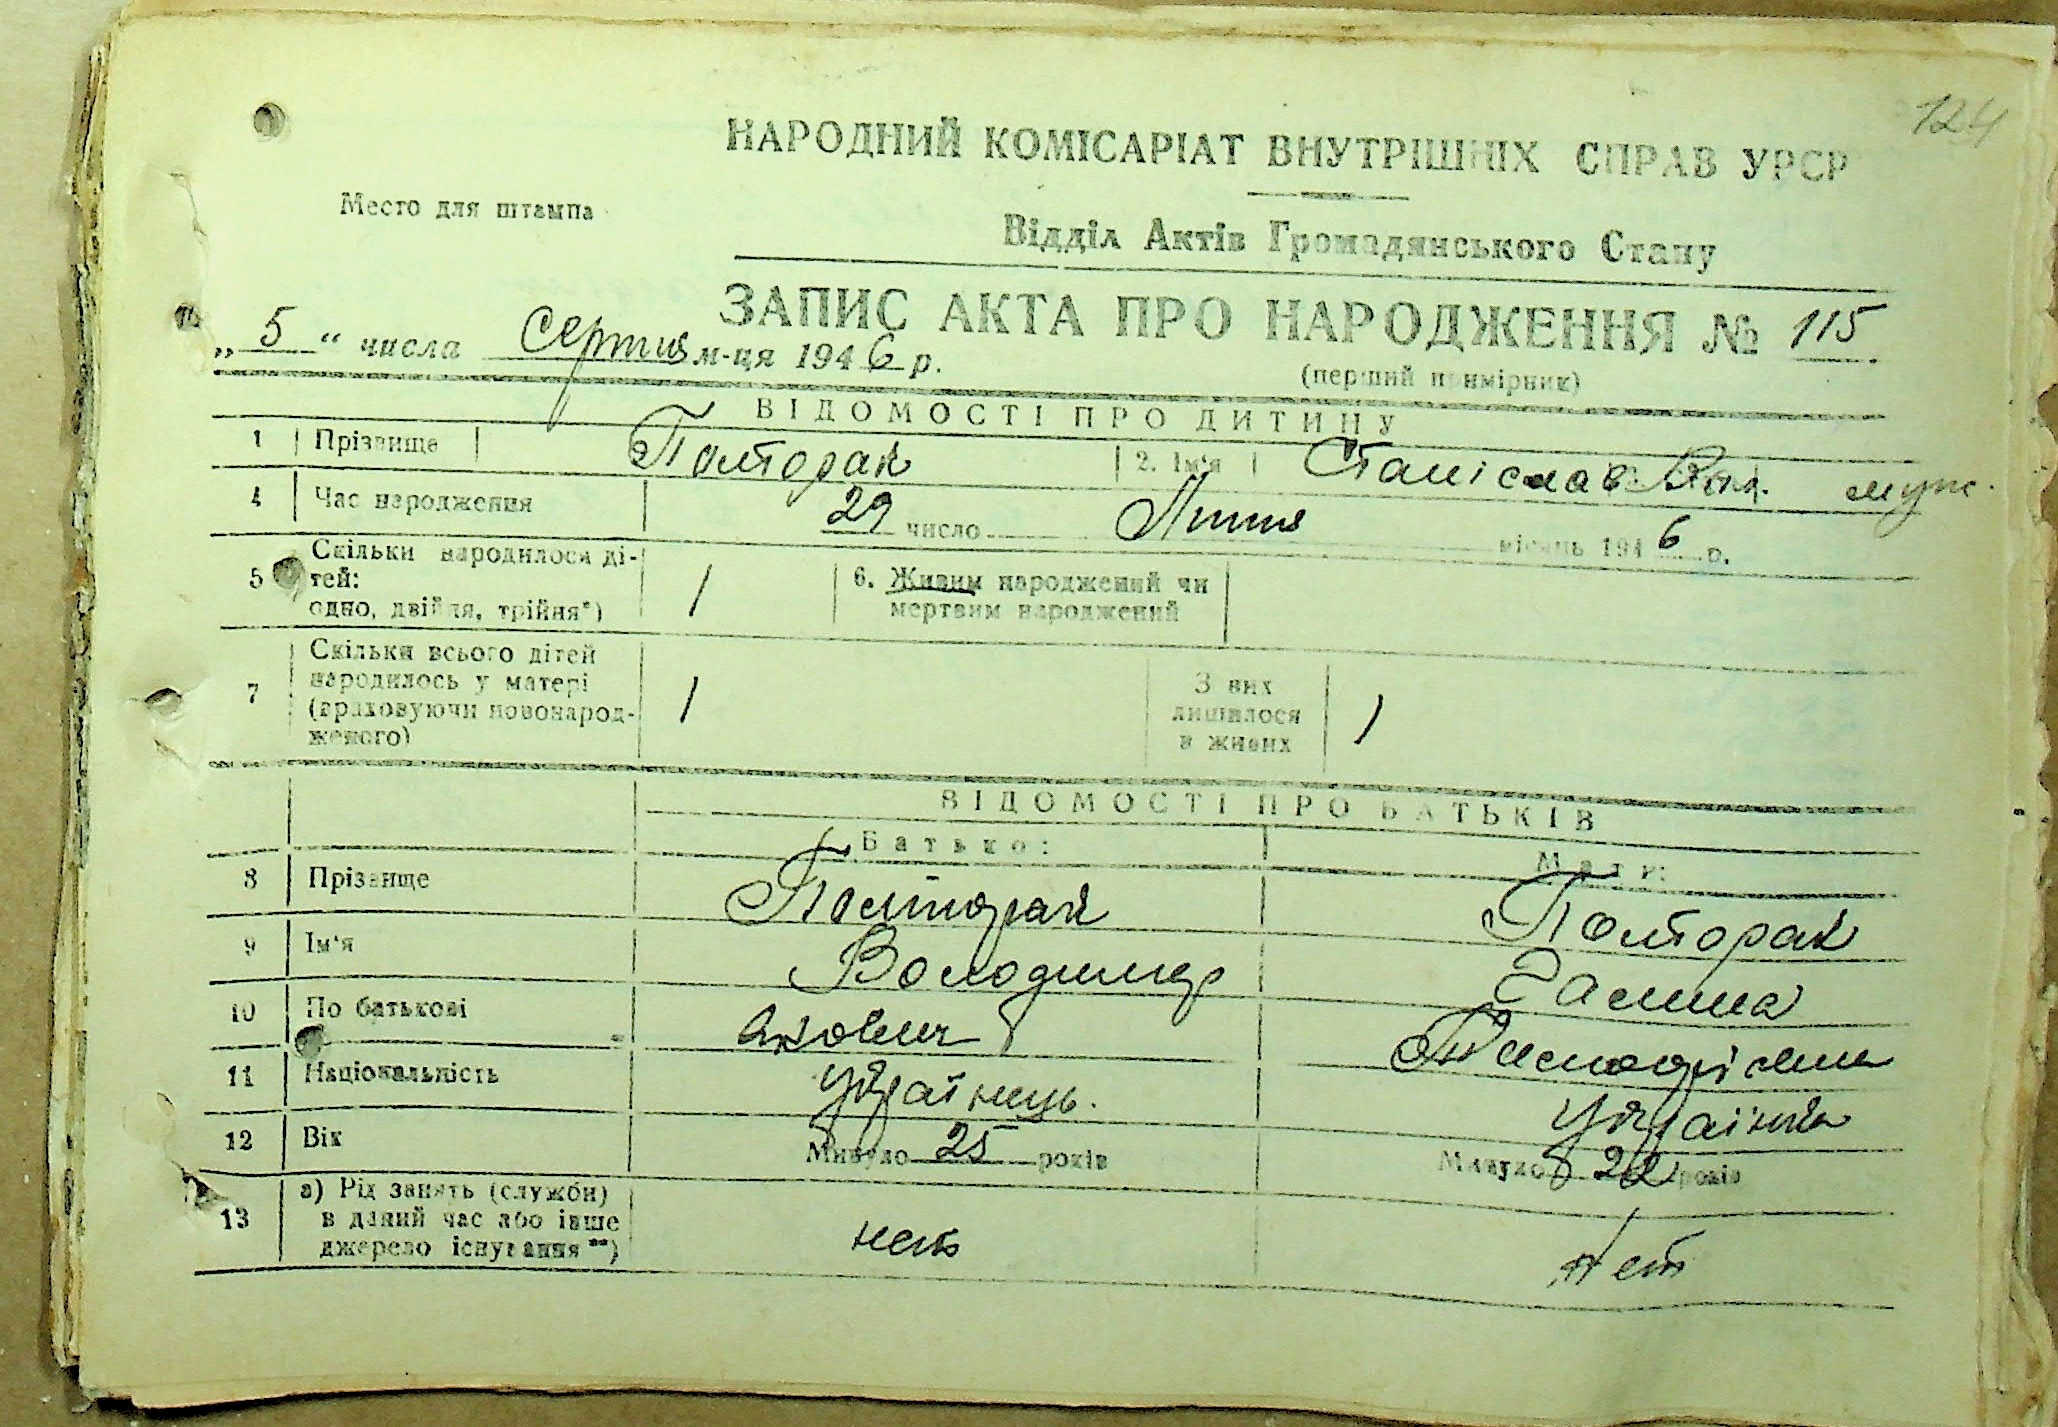 124
НАРОДНИЙ КОМІСАРІАТ ВНУТРІШНІХ СПРАВ УРСР
Место для штампа
Відділ Актів Громадянського Стану
ЗАПИС АКТА ПРО НАРОДЖЕННЯ № 115
„ 5 “ числа Серпня м-ця 1946 р.
(перший примірник)
ВІДОМОСТІ ПРО ДИТИНУ
1 Прізвище Полторак 2. Ім'я Станіслав Вол. муж.
4 Час народження 29 число Липня місяць 1946 р.
5 Скільки народилося ді-
тей:
одно, двійня, трійня*) 1
6. Живим народжений чи
мертвим народжений
7 Скільки всього дітей
народилось у матері
(враховуючи новонарод-
женого) 1
З них
лишилося
в живих 1
ВІДОМОСТІ ПРО БАТЬКІВ
Батько: Мати:
8 Прізвище Полторак Полторак
9 Ім'я Володимир Галина
10 По батькові Якович
11 Національність Українець. Українка
12 Вік Минуло 25 років Минуло 22 років
13 а) Рід занять (служби)
в даний час або інше
джерело існування**) нет нет